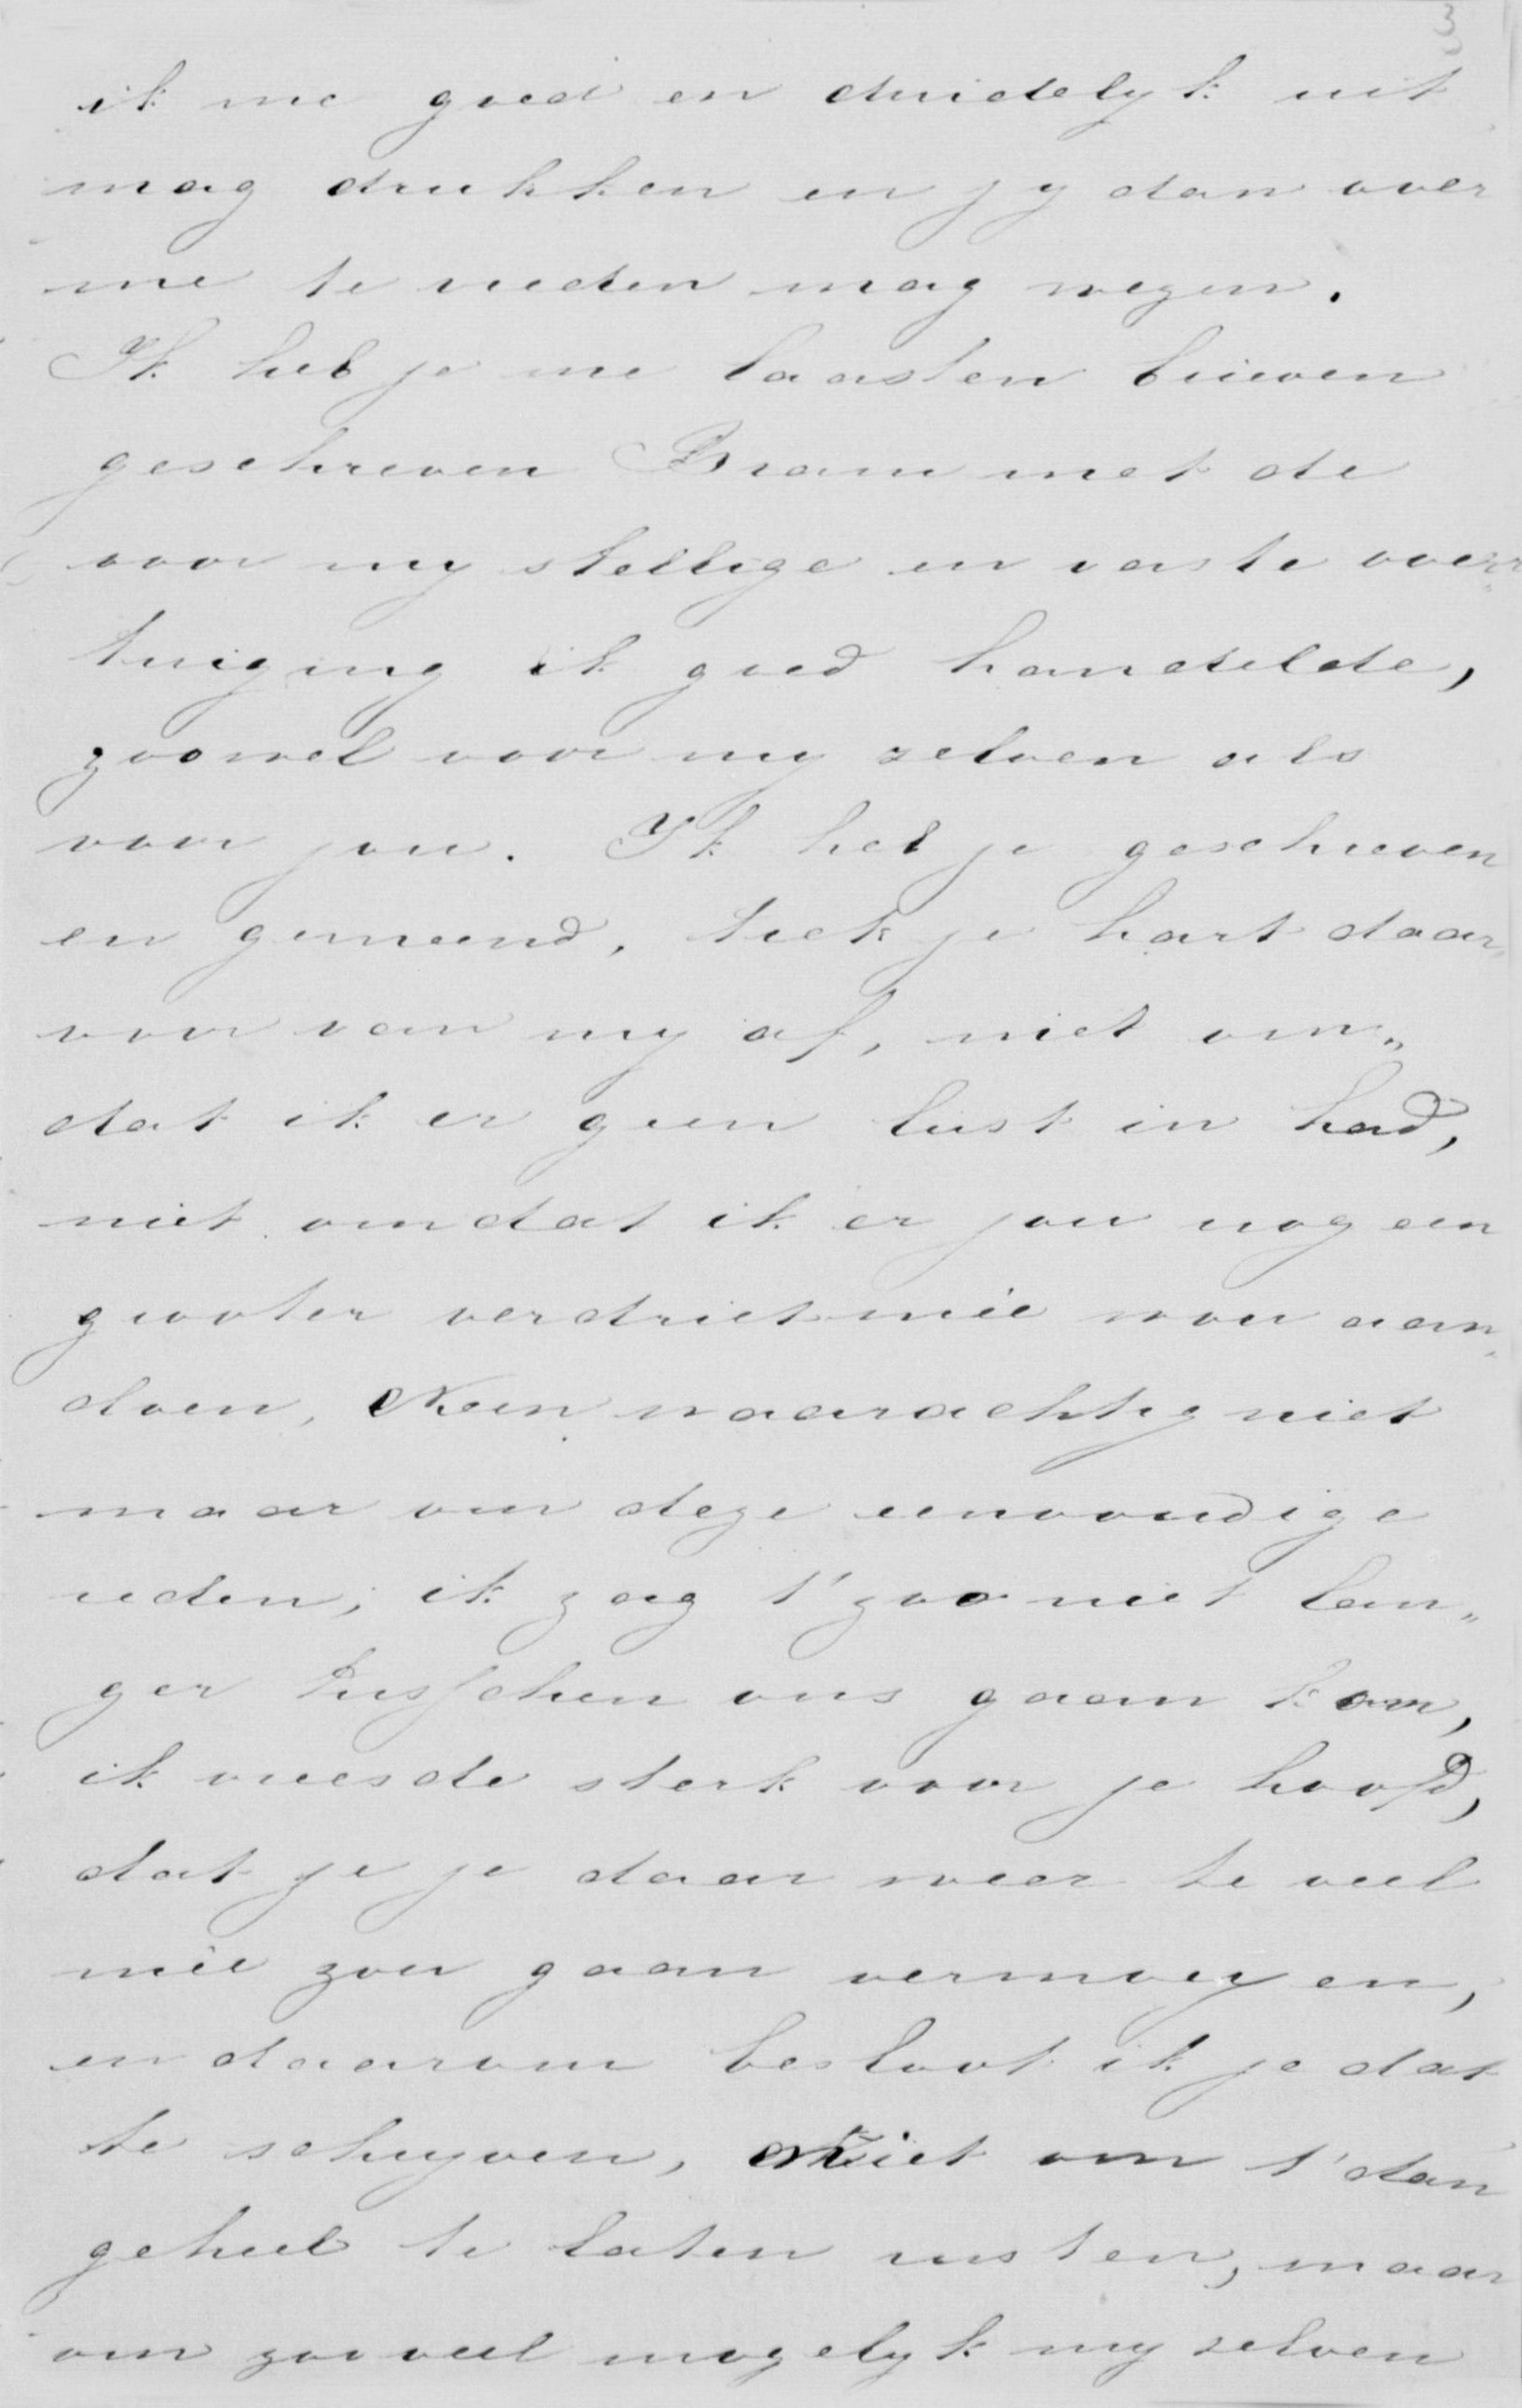 3
ik me goed en duidelyk uit
mag drukken en jy dan over
me te vreden mag wezen.
Ik heb je me laasten brieven
geschreven Bram met de
voor my stellige en vaste over„
tuiging ik goed handelde,
zoowel voor my zelven als
voor jou. Ik heb je geschreven
en gemeend, trek je hart daar„
voor van my af, niet om„
dat ik er geen lust in had,
niet omdat ik er jou nog een
grooter verdriet mée wou aan„
doen, Neen waarachtig niet
maar om deze eenvoudige
reden; ik zag t' zoo niet lan„
ger tusschen ons gaan kon,
ik vreesde sterk voor je hoofd,
dat je je daar weer te veel
mée zou gaan vermoeyen,
en daarom besloot ik je dat
te schryven, Niet om t' dan
geheel te laten rusten, maar
om zooveel mogelyk my zelven